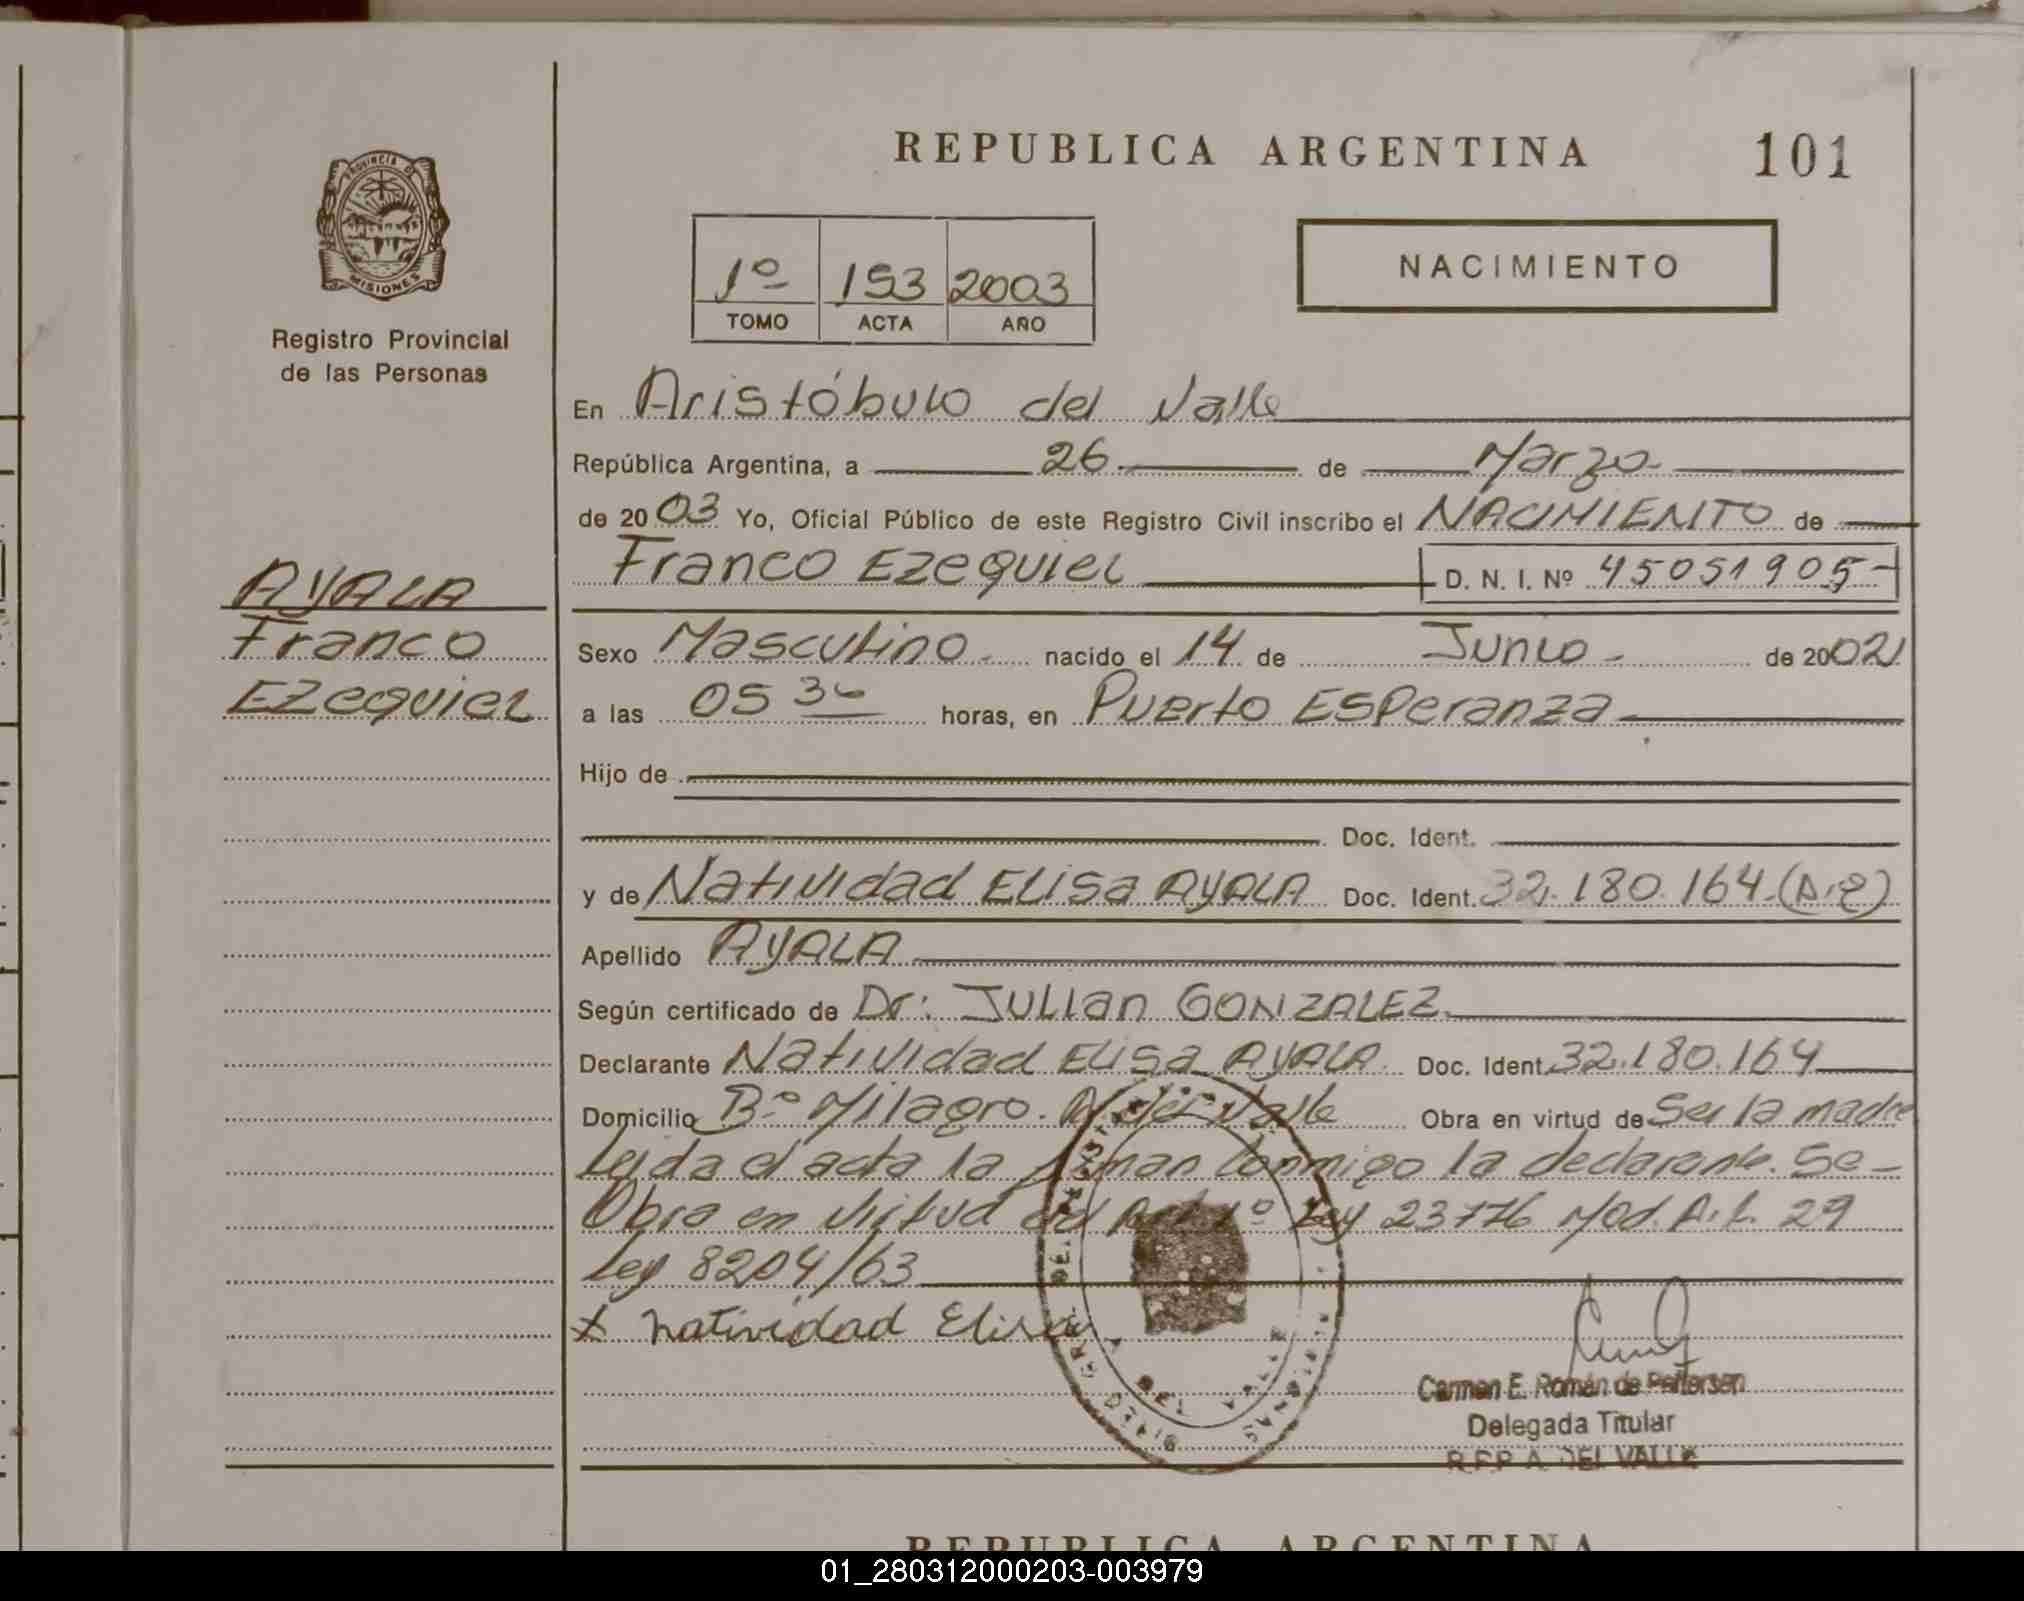 REPUBLICA ARGENTINA 101
PROVINCIA DE MISIONES
Registro Provincial
de las Personas
1º 153 2003
TOMO ACTA AÑO
NACIMIENTO
En Aristóbulo del Valle
República Argentina, a 26 de Marzo
de 2003 Yo, Oficial Público de este Registro Civil inscribo el NACIMIENTO de
Franco Ezequiel D. N. I. Nº 45051905
AYALA
Franco
Ezequiel
Sexo Masculino nacido el 14 de Junio de 2002
a las 05 30 horas, en Puerto Esperanza
Hijo de
Doc. Ident.
y de Natividad Elisa AYALA Doc. Ident. 32.180.164
Apellido AYALA
Según certificado de Dr: Julian GONZALEZ
Declarante Natividad Elisa AYALA Doc. Ident. 32.180.164
Domicilio Bº Milagro. A. del Valle Obra en virtud de Ser la madre
Leida el acta la firman conmigo la declarante. Se
Obra en virtud del Art 1º Ley 23776 Mod. Art. 29
Ley 8204/63
x Natividad Elisa
Carmen E. Román de Pettersen
Delegada Titular
R.P.P. A. DEL VALLE
REPUBLICA ARGENTINA
01_280312000203-003979